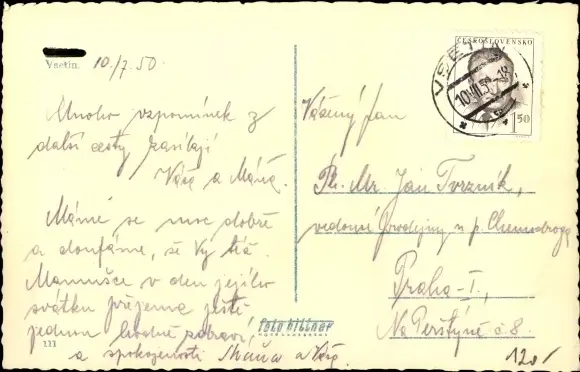 Vsetín. 10./7. 50.
Mnoho vzpomínek z
další cesty zasílají
Váša a Máňa.
Máme se moc dobře
a doufáme, že Vy též.
Mamušce v den jejího
svátku přejeme ještě
jednou hodně zdraví,
a spokojenosti Máňa a Váša
333
foto Hillner
ČESKOSLOVENSKO
1.50
VSETÍN
10.VII.50-18
Vážený pan
Ph. Mr. Jan Tvrzník,
vedoucí prodejny n. p. Chemodroga
Praha-I.,
Na Perštýně č. 8.
120/